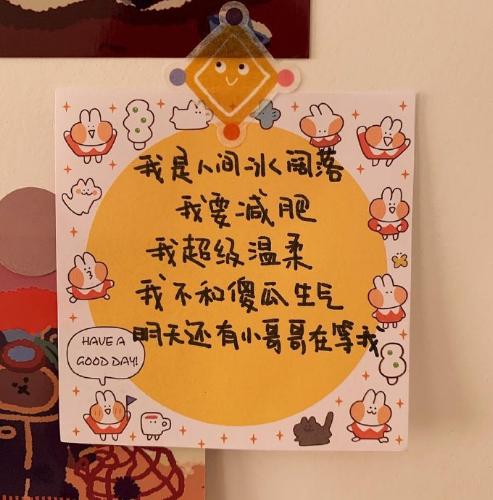 我是人间冰阔落
我要减肥
我超级温柔
我不和傻瓜生气
明天还有小哥哥在等我
HAVE A
GOOD DAY!